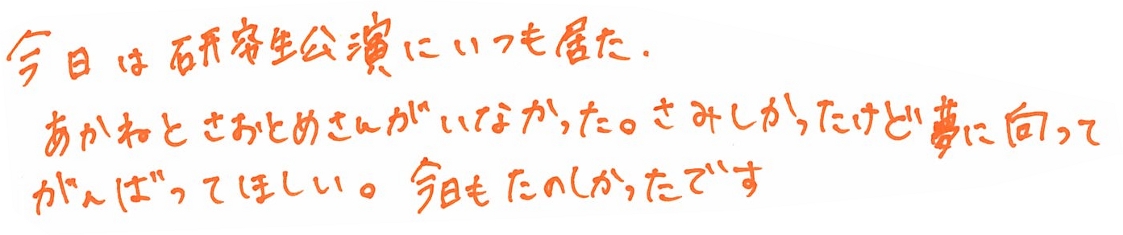 今日は研究生公演にいつも居た.
あかねとさおとめさんがいなかった。さみしかったけど夢に向って
がんばってほしい。今日もたのしかったです